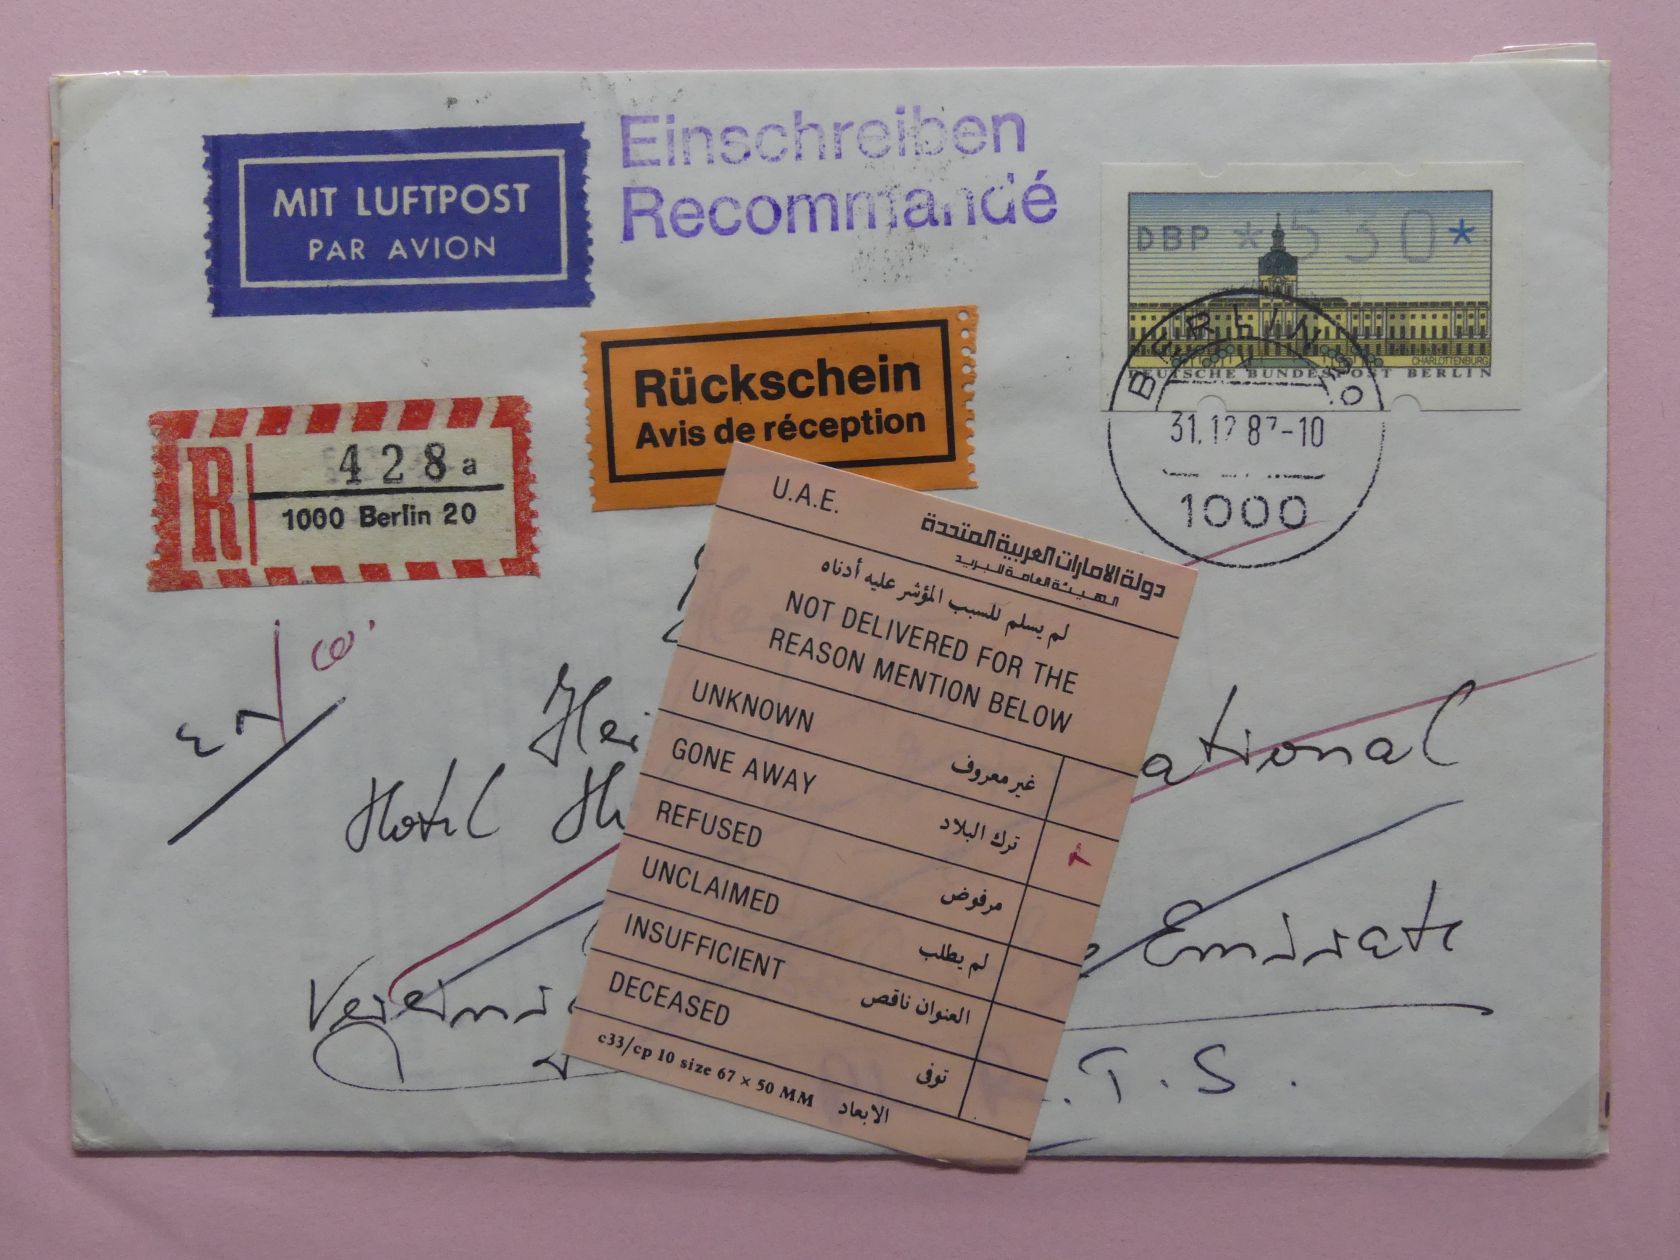 MIT LUFTPOST
PAR AVION
Einschreiben
Recommandé
DBP *530*
CHARLOTTENBURG
DEUTSCHE BUNDESPOST BERLIN
BERLIN
31.12 87-10
1000
Rückschein
Avis de réception
R
428 a
1000 Berlin 20
U.A.E.
دولة الامارات العربية المتحدة
الهيئة العامة للبريد
لم يسلم للسبب المؤشر عليه أدناه
NOT DELIVERED FOR THE
REASON MENTION BELOW
UNKNOWN غير معروف
GONE AWAY ترك البلاد
REFUSED مرفوض
UNCLAIMED لم يطلب
INSUFFICIENT العنوان ناقص
DECEASED توفى
c33/cp 10 size 67 × 50 MM الابعاد
Hotel
ational
Emirate
.T.S.